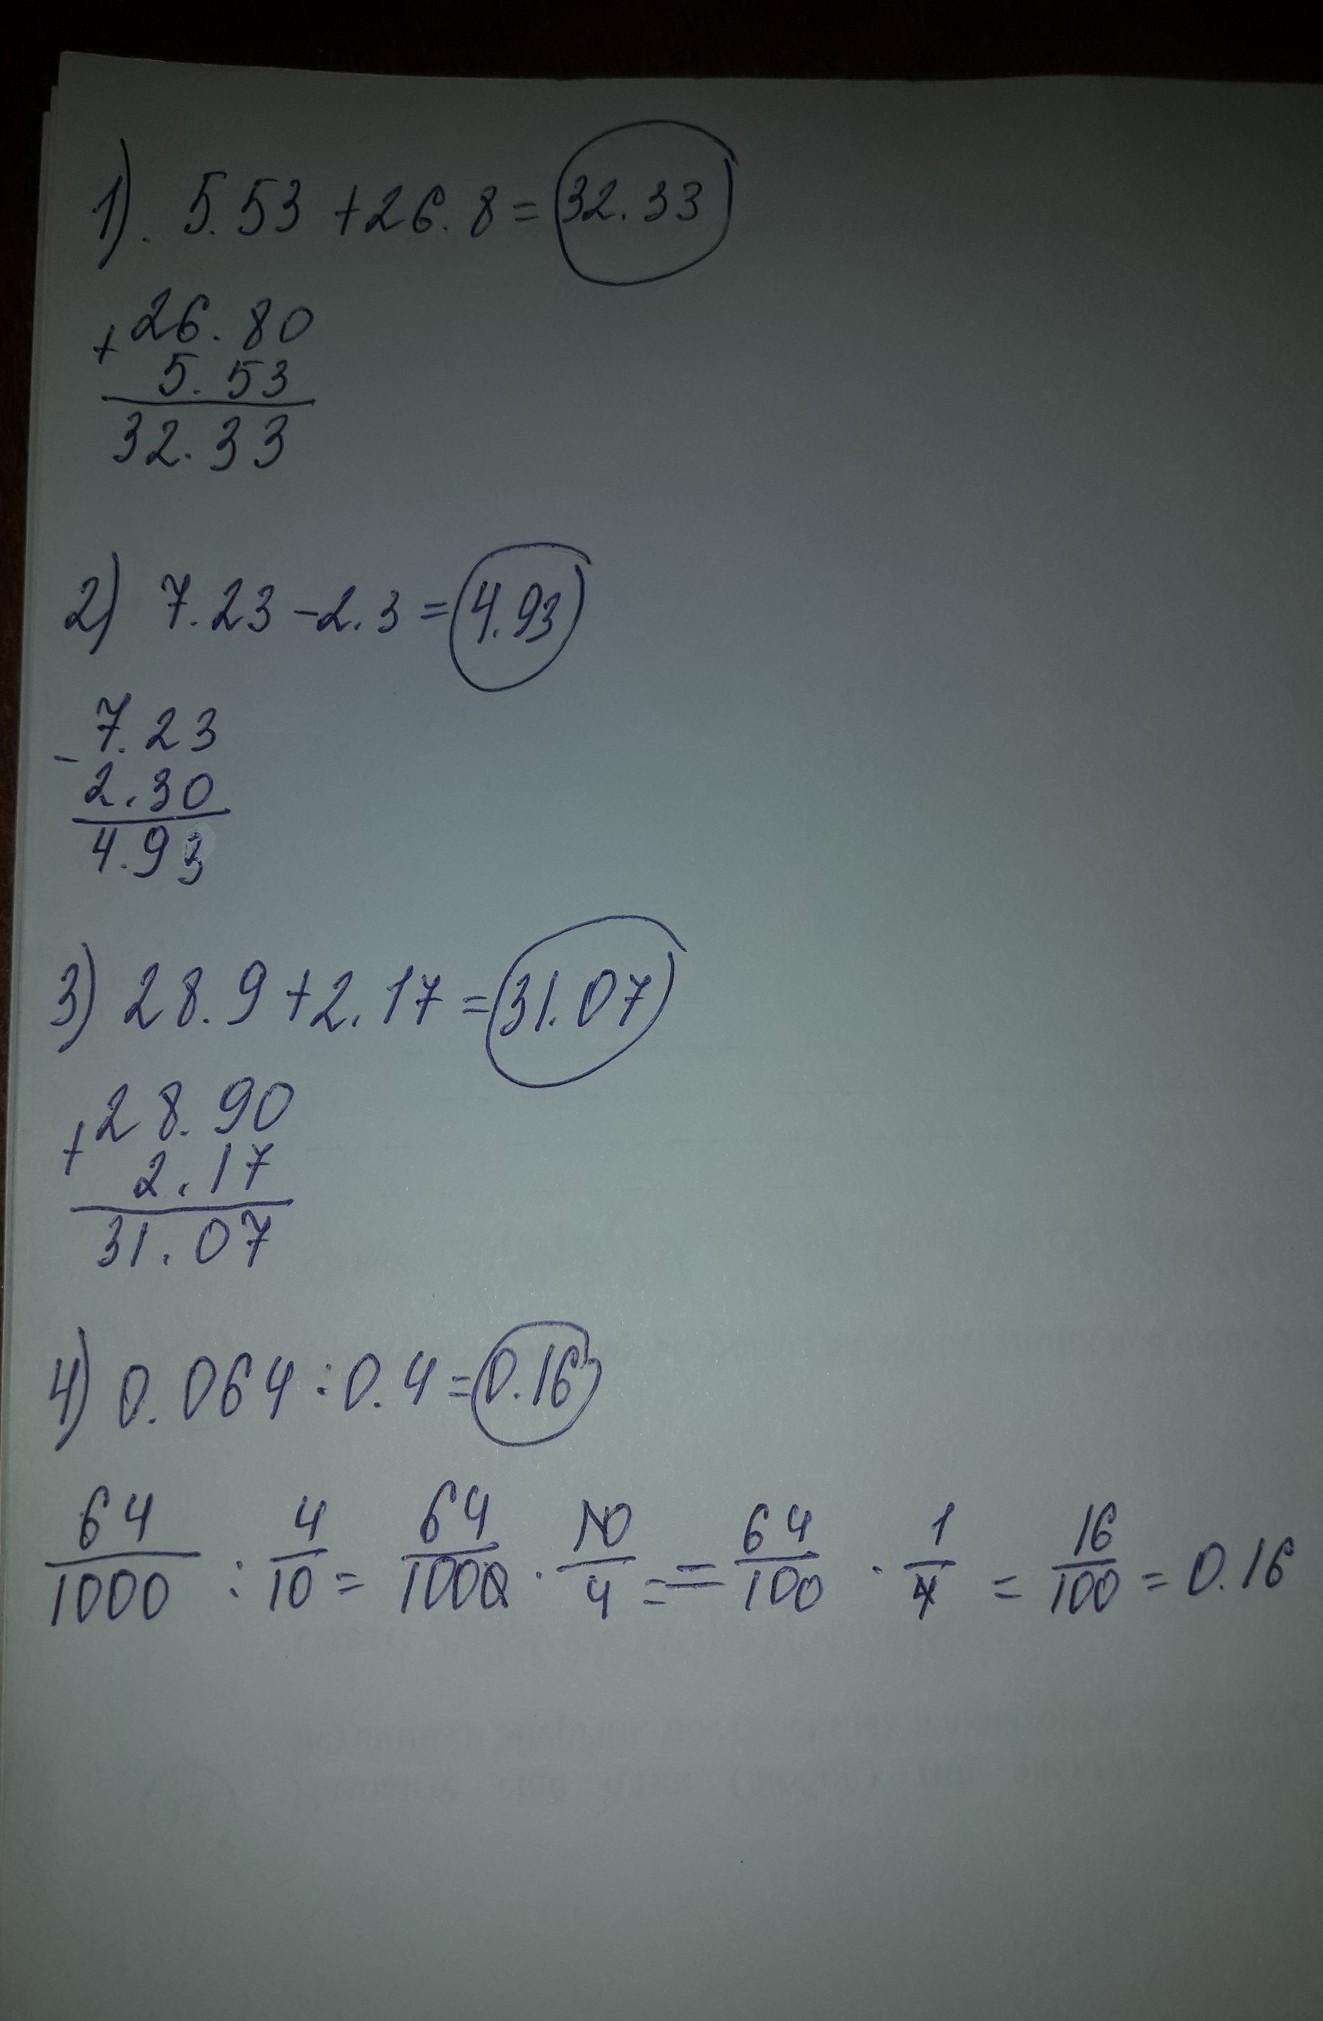 1). 5.53 + 26.8 = 32.33
+ 26.80
5.53
32.33
2) 7.23 - 2.3 = 4.93
- 7.23
2.30
4.93
3) 28.9 + 2.17 = 31.07
+ 28.90
2.17
31.07
4) 0.064 : 0.4 = 0.16
64/1000 : 4/10 = 64/1000 · 10/4 = = 64/100 · 1/4 = 16/100 = 0.16